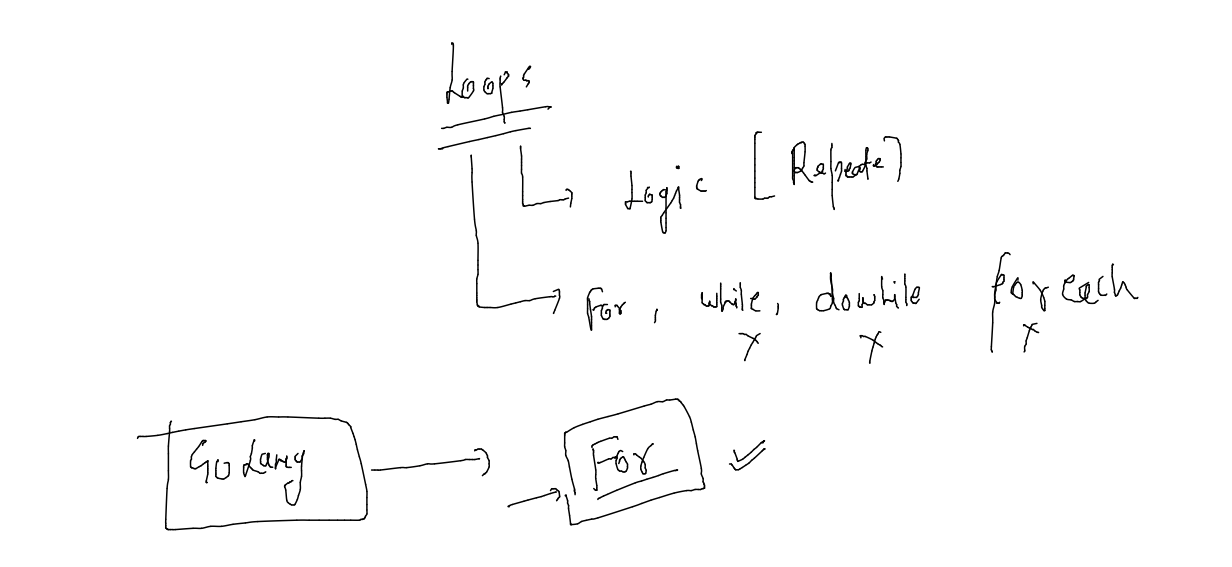 Loops
Logic [Repeate]
For, while, dowhile foreach
x x x
GoLang
For